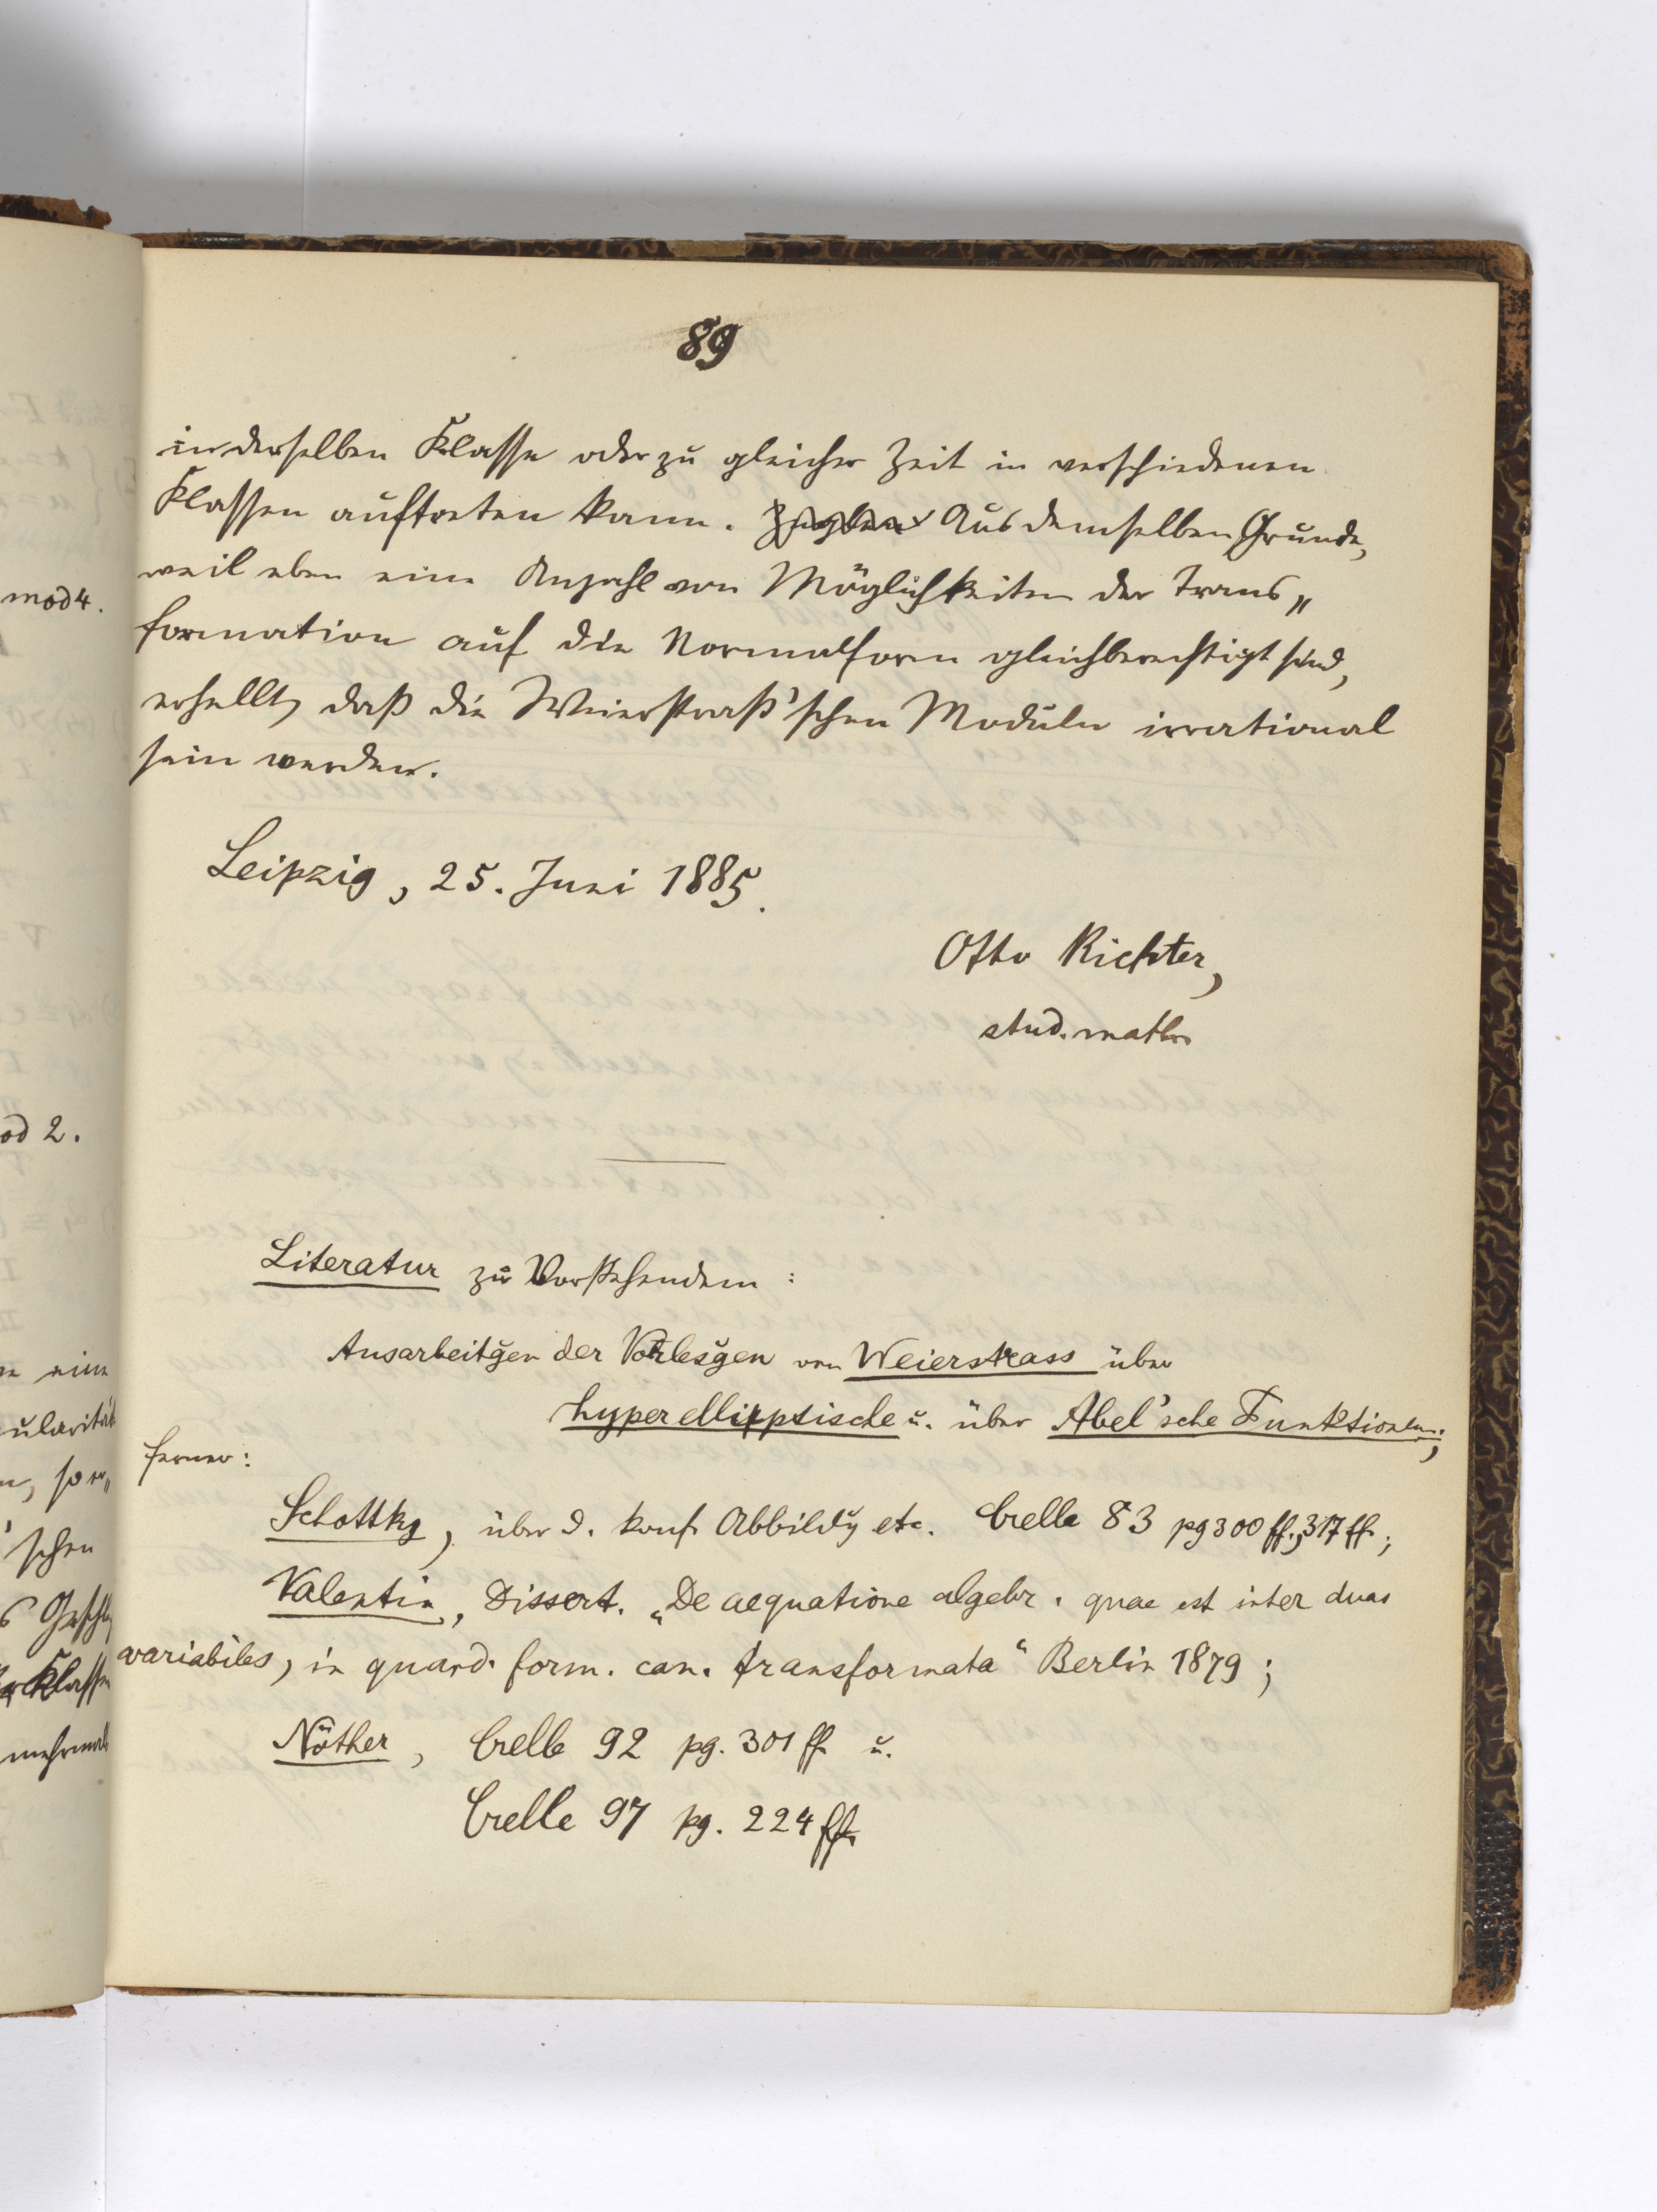 89
in derselben Klasse oder zu gleicher Zeit in verschiedenen
Klassen auftreten kann. Aus demselben Grunde,
weil eben eine Anzahl von Möglichkeiten der Trans„
formation auf die Normalform gleichberechtigt sind,
erhellt, daß die Weierstraß'schen Moduln irrational
sein werden.
Leipzig, 25. Juni 1885.
Otto Richter,
stud. math.
Literatur zu Vorstehendem:
Ausarbeitg̃en der Vorlesg̃en von Weierstrass über
hyperelliptische u. über Abel'sche Funktionen;
ferner:
Schottky, über d. konf. Abbildg etc. Crelle 83 pg 300 ff., 317 ff.;
Valentin, Dissert. „De aequatione algebr. quae est inter duas
variabiles, in quand. form. can. transformata“ Berlin 1879;
Nöther, Crelle 92 pg. 301 ff. u.
Crelle 97 pg. 224 ff.
mod 4.
od 2.
eine
ularität
'schen
Klassen
mehrmals